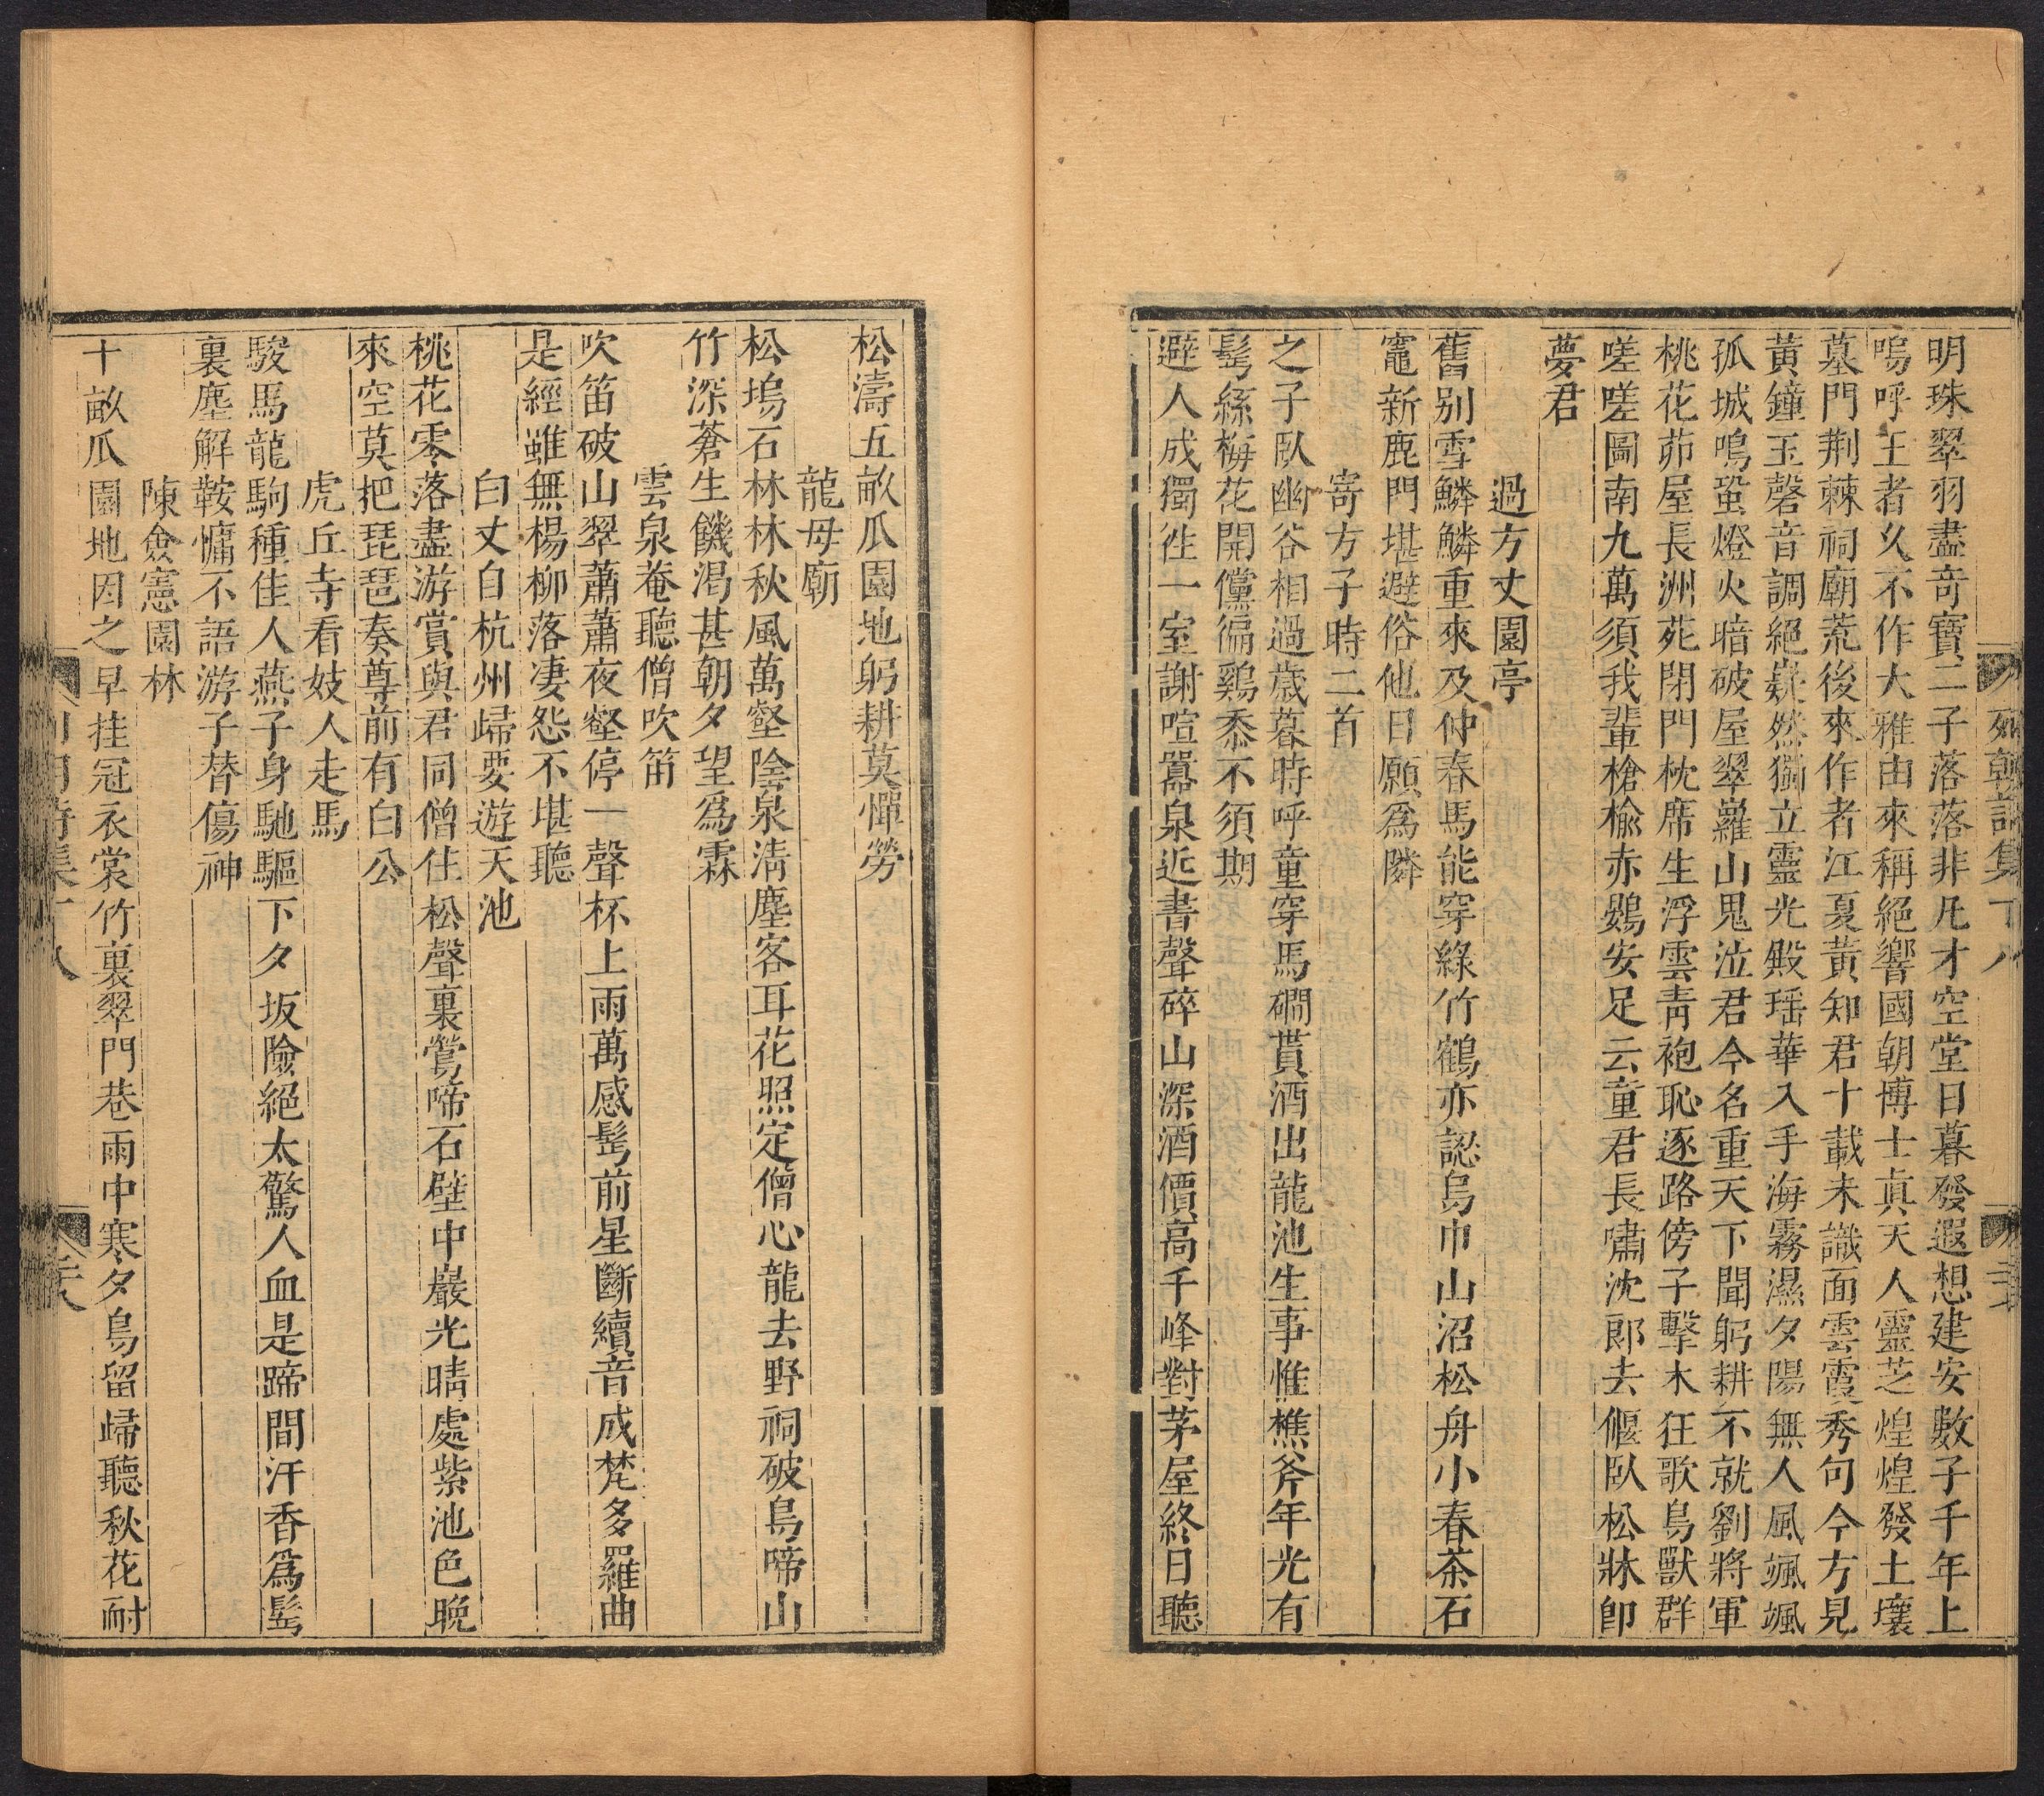 明珠翠羽盡奇寶二子落落非凡才空堂日暮發遐想建安數子千年上
嗚呼王者久不作大雅由來稱絕響國朝博士真天人靈芝煌煌發土壤
墓門荆棘祠廟荒後來作者江夏黃知君十載未識面雲霞秀句今方見
黃鐘玉磬音調絕嶷然獨立靈光殿瑶華入手海霧濕夕陽無人風颯颯
孤城鳴蛩燈火暗破屋翠蘿山鬼泣君今名重天下聞躬耕不就劉將軍
桃花茆屋長洲苑閉門枕席生浮雲青袍恥逐路傍子擊木狂歌鳥獸群
嗟嗟圖南九萬須我輩槍楡赤鷃安足云童君長嘯沈郎去偃臥松牀卽
夢君
過方丈園亭
舊別雪鱗鱗重來及仲春馬能穿綠竹鶴亦認烏巾山沼松舟小春茶石
竈新鹿門堪避俗他日願爲隣
寄方子時二首
之子臥幽谷相過歲暮時呼童穿馬磵貰酒出龍池生事惟樵斧年光有
髩絲梅花開儻徧鷄黍不須期
避人成獨徃一室謝喧囂泉近書聲碎山深酒價高千峰對茅屋終日聽
松濤五畝瓜園地躬耕莫憚勞
龍母廟
松塢石林林秋風萬壑陰泉淸塵客耳花照定僧心龍去野祠破鳥啼山
竹深蒼生饑渴甚朝夕望爲霖
雲泉菴聽僧吹笛
吹笛破山翠蕭蕭夜壑停一聲杯上雨萬感髩前星斷續音成梵多羅曲
是經雖無楊柳落凄怨不堪聽
白丈自杭州歸要遊天池
桃花零落盡游賞與君同僧住松聲裏鶯啼石壁中巖光晴處紫池色晚
來空莫把琵琶奏尊前有白公
虎丘寺看妓人走馬
駿馬龍駒種佳人燕子身馳驅下夕坂險絕太驚人血是蹄間汗香爲髩
裏塵解鞍慵不語游子替傷神
陳僉憲園林
十畝瓜園地因之早挂冠衣棠竹裏翠門巷雨中寒夕鳥留歸聽秋花耐